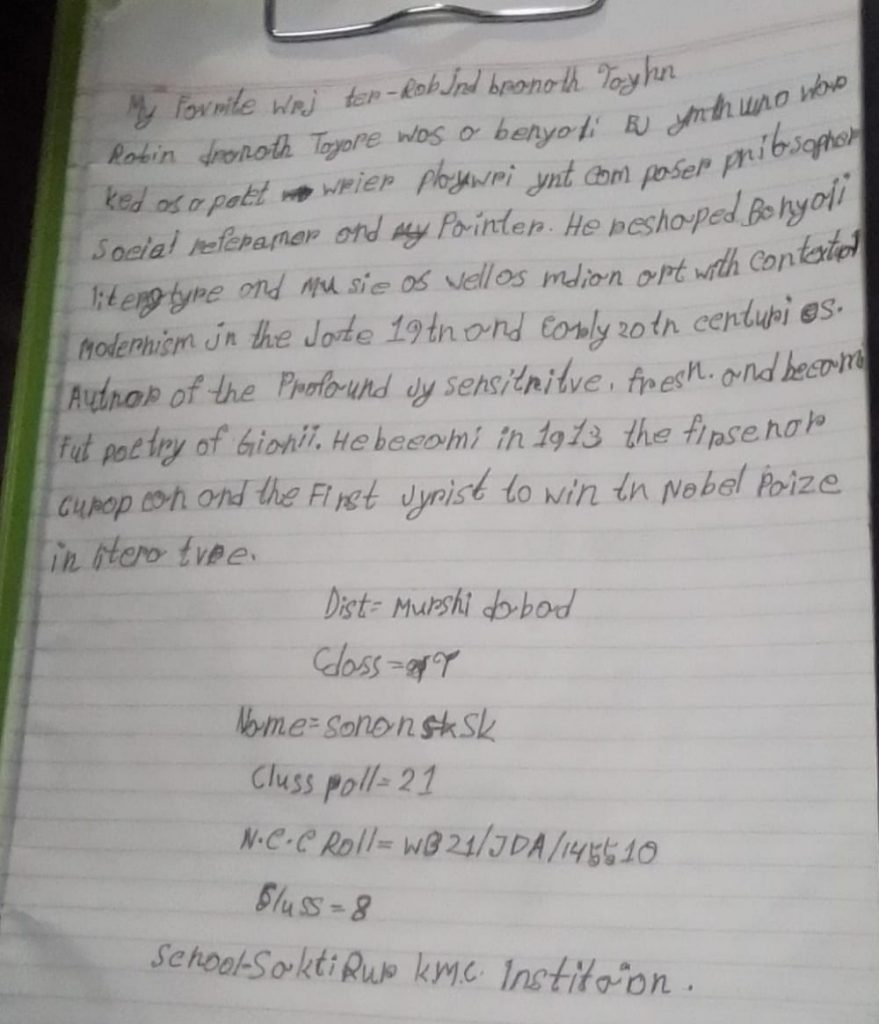 My Formite Wrj ter-Rob Jnd branoth Toyhn
Robin dranoth Toyore wos o benyoli BJ ymth uno wor
ked os o poet weier ploywri ynt com poser pnibsopher
social referamer ond Painter. He reshaped Bonyoli
literg tyre ond mu sic os vellos indion ort with contextol
modernism in the lote 19tn and Eorly 20th centuri es.
Autnor of the Profound Jy sensitnitve, fresh. and becomi
Fut poetry of Gionii. He becomi in 1913 the firse nor
curop eon ond the First Jyrist to win tn Nobel Paize
in litero tvre.
Dist= Murshi dobod
Closs =
Nome= Sonon Sk
Cluss roll= 21
N.C.C Roll= WB21/JDA/145510
Cluss = 8
School-Sokti Rur k.m.c. Institoion.